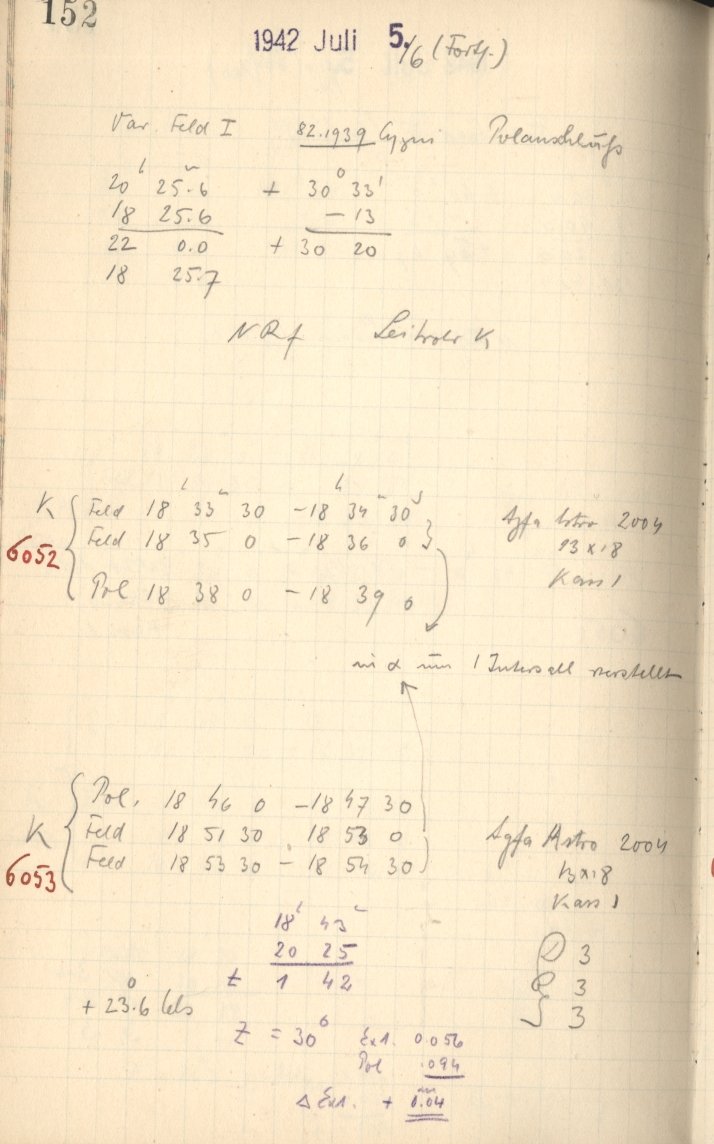 152
1942 Juli 5./6 (Forts.)
Var. Feld I 82.1939 Cygni Polanschluß
20ʰ 25ᵐ.6 + 30° 33'
18 25.6 - 13
22 0.0 + 30 20
18 25.7
Leitrohr K
K 6052
Feld 18ʰ 33ᵐ 30 - 18ʰ 34ᵐ 30ˢ
Feld 18 35 0 - 18 36 0
Pol 18 38 0 - 18 39 0
Agfa Astro 2004
13 x 18
Kass 1
in α um 1 Intervall verstellt
K 6053
Pol. 18 46 0 - 18 47 30
Feld 18 51 30 18 53 0
Feld 18 53 30 - 18 54 30
Agfa Astro 2004
13 x 18
Kass 1
18ʰ 43ᵐ
20 25
t 1 42
D 3
3
3
+ 23°.6 Cels
Z = 30° Ext. 0.056
Pol .094
Δ Ext. + 0ᵐ.04